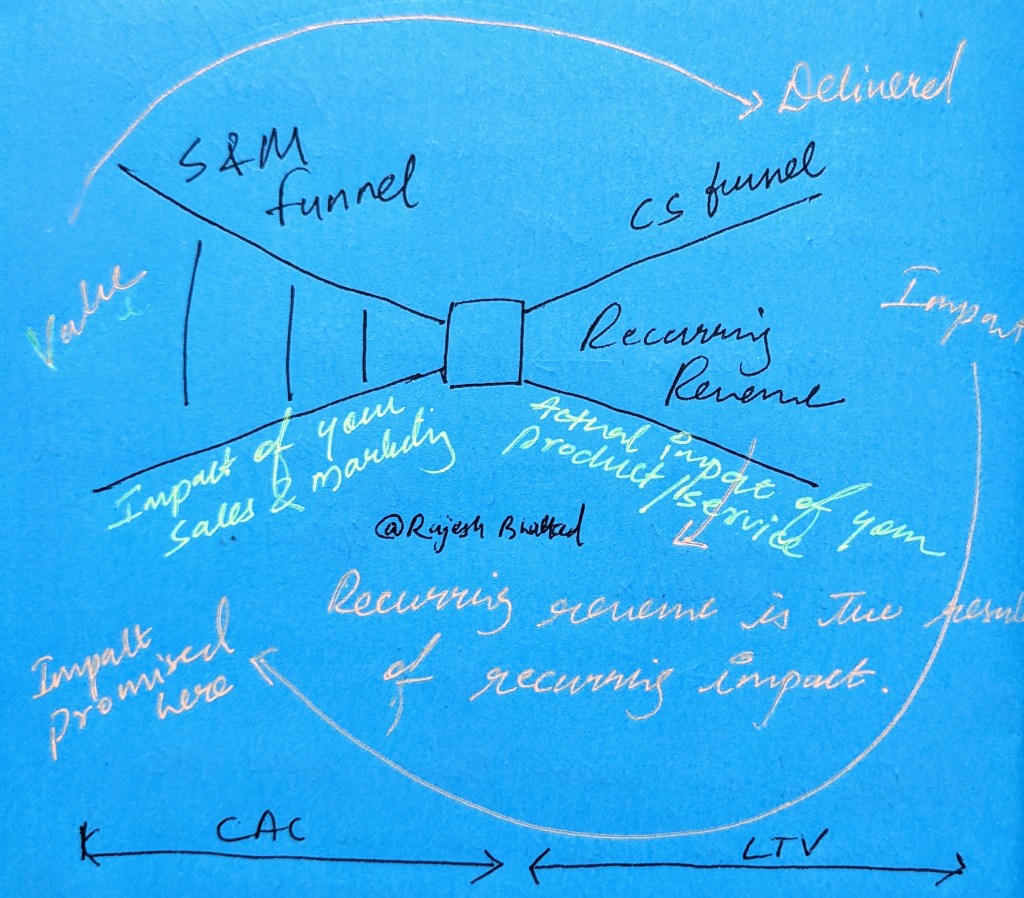 Delivered
S & M
funnel
CS funnel
Value
Impact
Recurring
Revenue
Impact of your
Sales & Marketing
Actual impact of your
product/service
@Rajesh
Recurring revenue is the result
of recurring impact.
Impact
promised
here
CAC
LTV